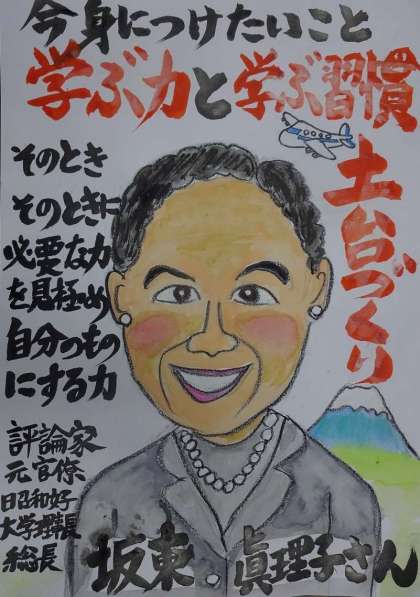 今身につけたいこと
学ぶ力と学ぶ習慣
土台づくり
そのとき
そのときに
必要な力
を見極め
自分のもの
にする力
評論家
元官僚
昭和女子
大学理事長
総長
坂東眞理子さん